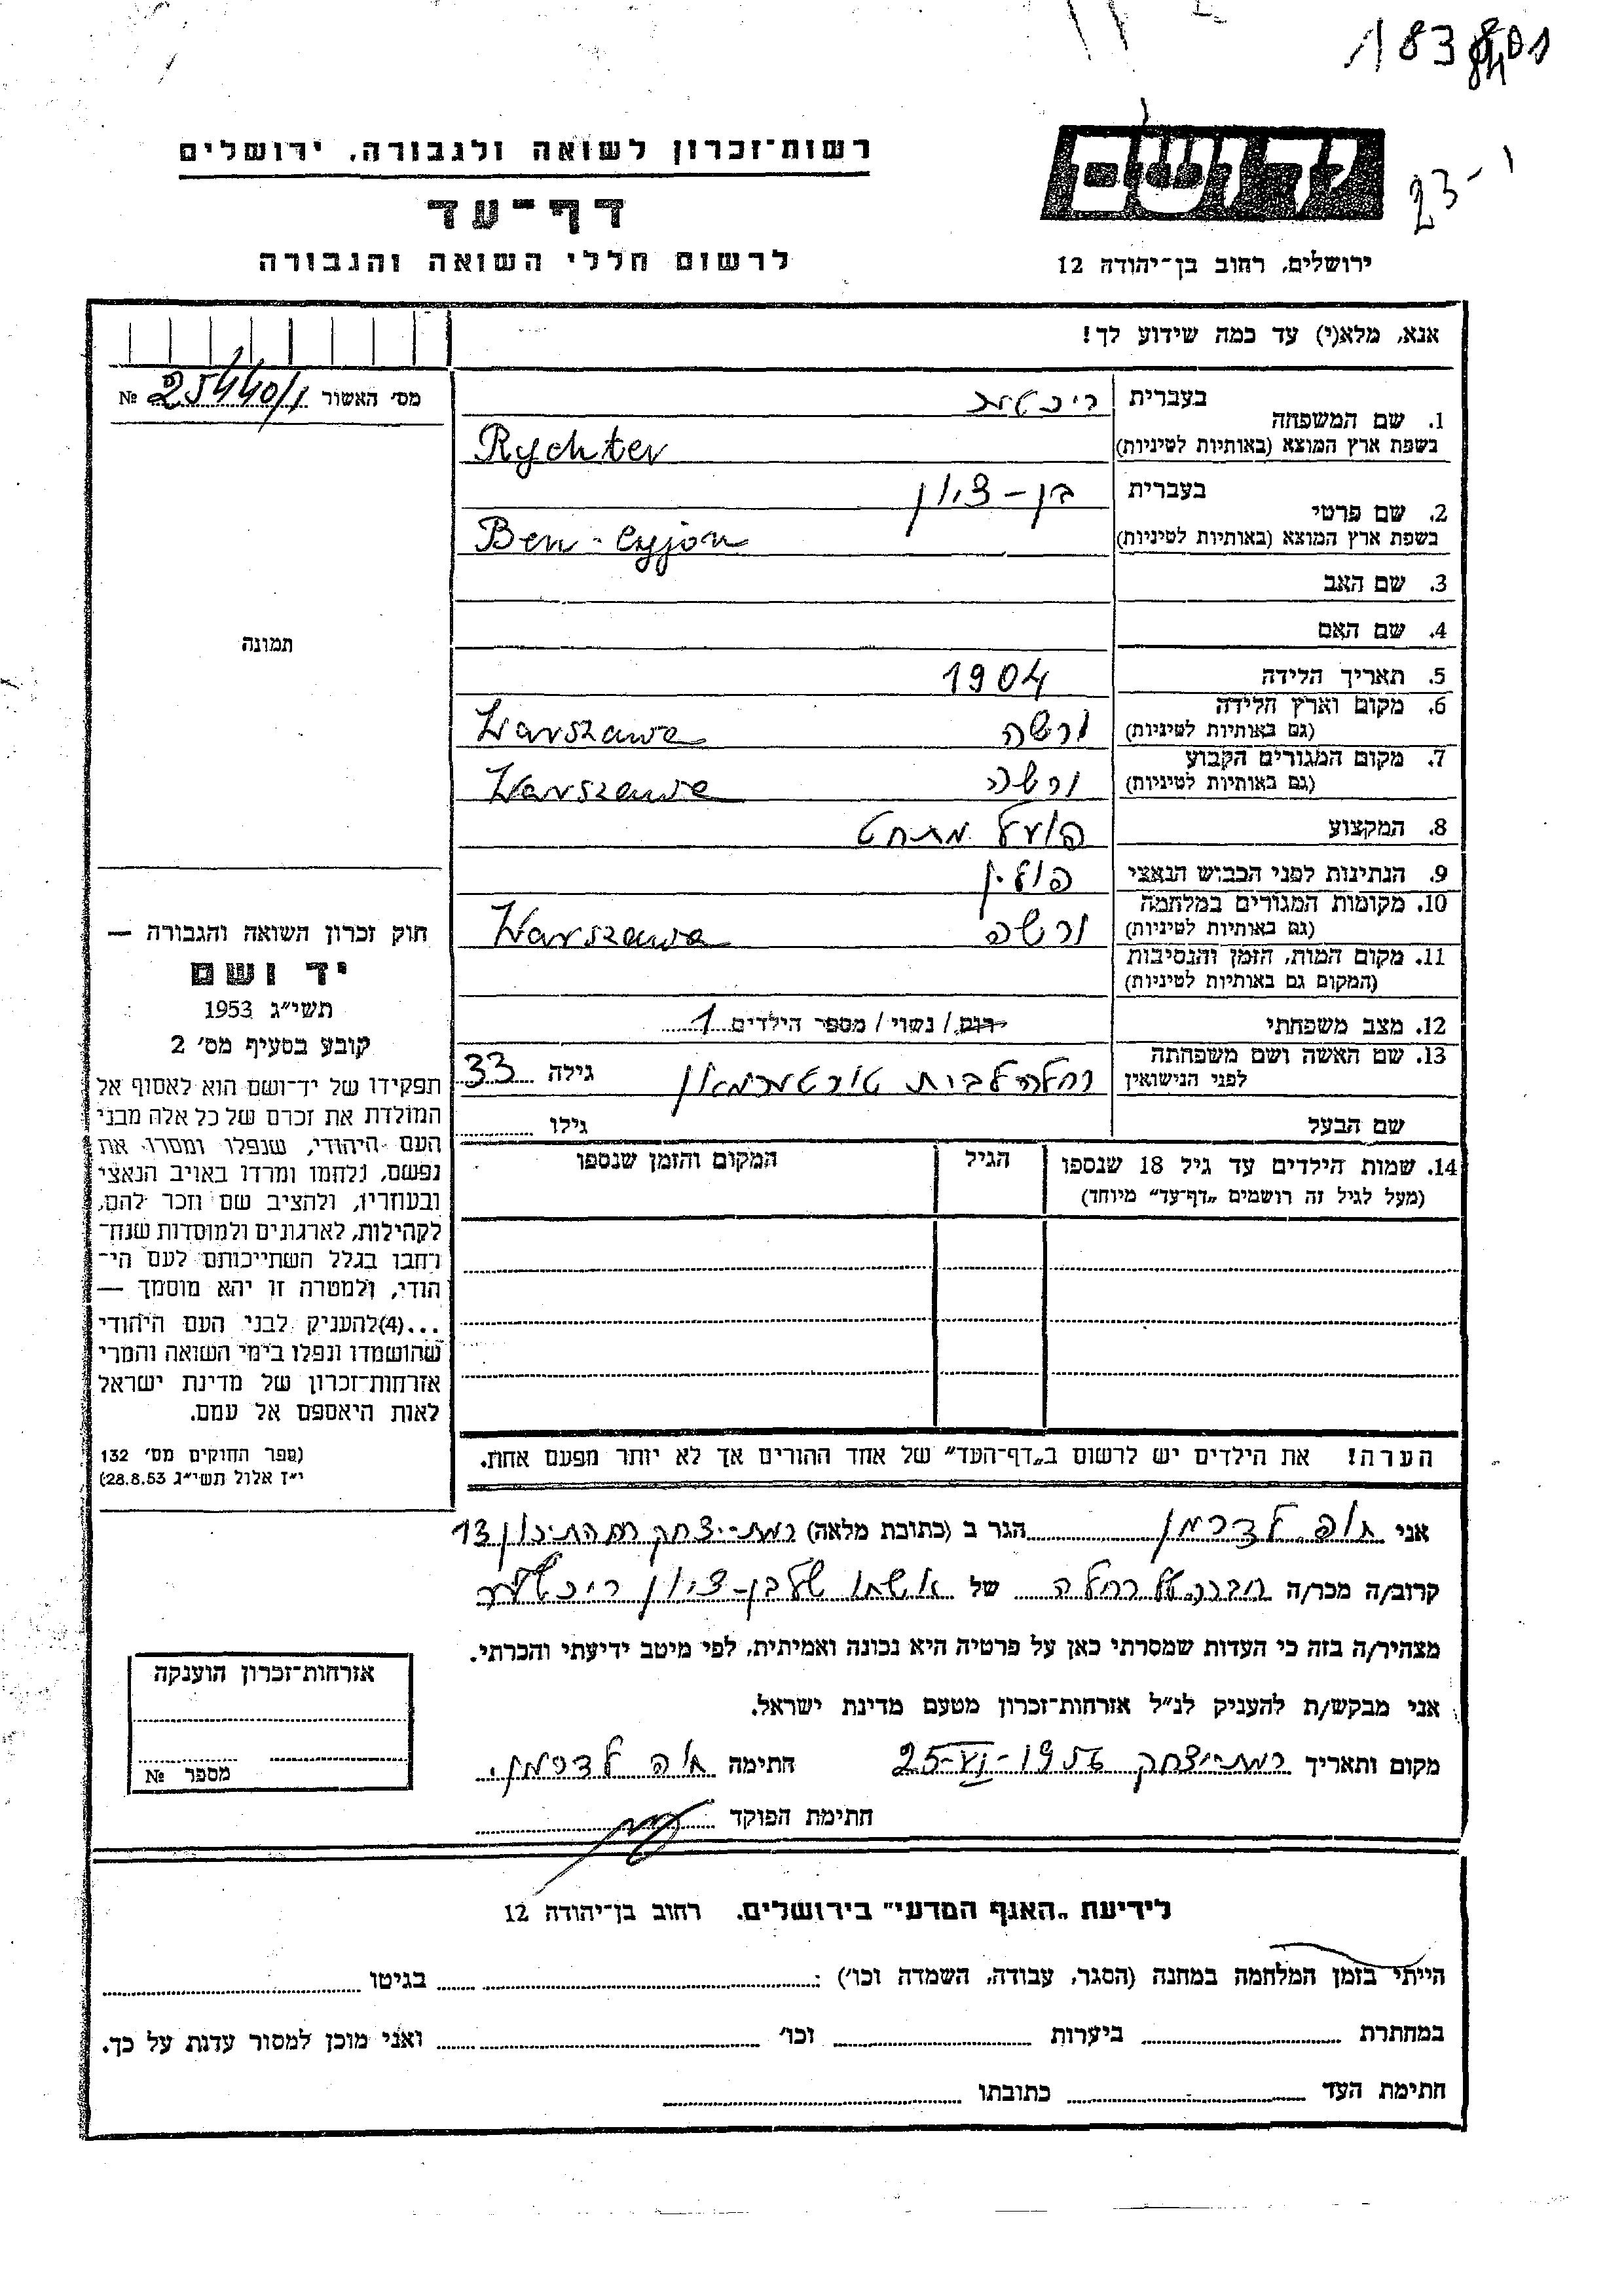 183 8401
23-1
יד ושם
רשות־זכרון לשואה ולגבורה, ירושלים
דף־עד
לרשום חללי השואה והגבורה
ירושלים, רחוב בן־יהודה 12
אנא, מלא(י) עד כמה שידוע לך!
מס׳ האשור 25440/1 №
תמונה
1. שם המשפחה בעברית ריכטר
בשפת ארץ המוצא (באותיות לטיניות) Rychter
2. שם פרטי בעברית בן-ציון
בשפת ארץ המוצא (באותיות לטיניות) Ben-Cyjon
3. שם האב
4. שם האם
5. תאריך הלידה 1904
6. מקום וארץ הלידה (גם באותיות לטיניות) ורשה Warszawa
7. מקום המגורים הקבוע (גם באותיות לטיניות) ורשה Warszawa
8. המקצוע פועל מחט
9. הנתינות לפני הכבוש הנאצי פולין
10. מקומות המגורים במלחמה (גם באותיות לטיניות) ורשה Warszawa
11. מקום המות, הזמן והנסיבות (המקום גם באותיות לטיניות)
12. מצב משפחתי רווק / נשוי / מספר הילדים 1
13. שם האשה ושם משפחתה לפני הנישואין רחלה לבית גילה 33
שם הבעל גילו
14. שמות הילדים עד גיל 18 שנספו הגיל המקום והזמן שנספו
(מעל לגיל זה רושמים „דף־עד״ מיוחד)
הערה! את הילדים יש לרשום ב„דף־העד״ של אחד ההורים אך לא יותר מפעם אחת.
חוק זכרון השואה והגבורה —
יד ושם
תשי״ג 1953
קובע בסעיף מס׳ 2
תפקידו של יד־ושם הוא לאסוף אל
המולדת את זכרם של כל אלה מבני
העם היהודי, שנפלו ומסרו את
נפשם, נלחמו ומרדו באויב הנאצי
ובעוזריו, ולהציב שם וזכר להם,
לקהילות, לארגונים ולמוסדות שנח־
רבו בגלל השתייכותם לעם הי־
הודי, ולמטרה זו יהא מוסמך —
...(4)להעניק לבני העם היהודי
שהושמדו ונפלו בימי השואה והמרי
אזרחות־זכרון של מדינת ישראל
לאות היאספם אל עמם.
(ספר החוקים מס׳ 132
י״ז אלול תשי״ג 28.8.53)
אני חוה לדרמן הגר ב (כתובת מלאה) רמת-יצחק 13
קרוב/ה מכר/ה חברה של רחלה של אשתו של בן-ציון ריכטר
מצהיר/ה בזה כי העדות שמסרתי כאן על פרטיה היא נכונה ואמיתית, לפי מיטב ידיעתי והכרתי.
אני מבקש/ת להעניק לנ״ל אזרחות־זכרון מטעם מדינת ישראל.
מקום ותאריך רמת-יצחק 25-VI-1956 חתימה חוה לדרמן
חתימת הפוקד
אזרחות־זכרון הוענקה
מספר №
לידיעת „האגף המדעי״ בירושלים. רחוב בן־יהודה 12
הייתי בזמן המלחמה במחנה (הסגר, עבודה, השמדה וכו׳) : בגיטו
במחתרת ביערות וכו׳ ואני מוכן למסור עדות על כך.
חתימת העד כתובתו